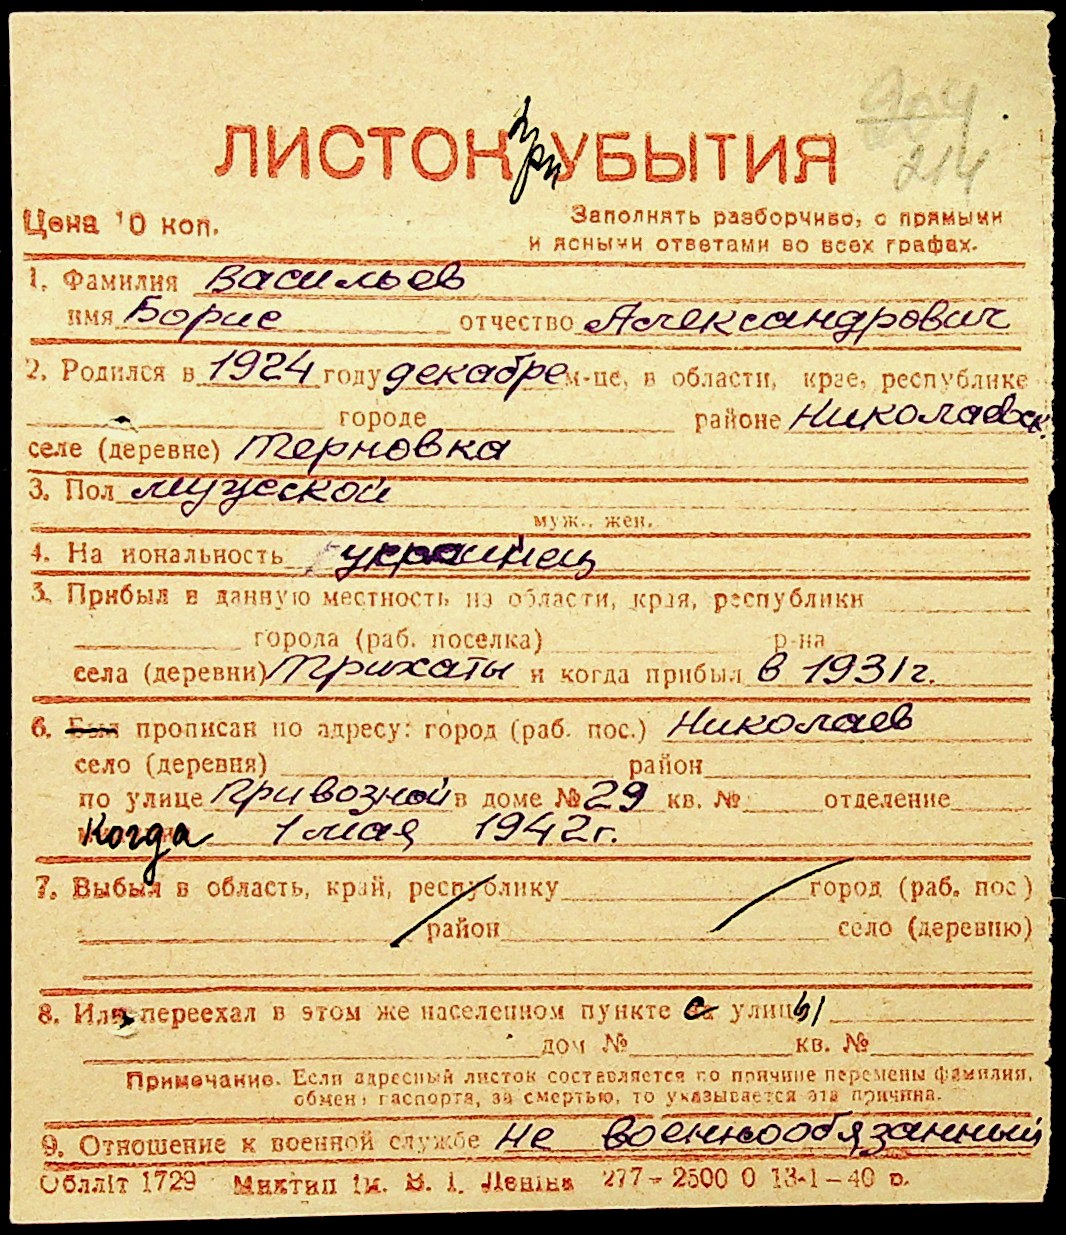 904
214
ЛИСТОК при УБЫТИЯ
Цена 10 коп.
Заполнять разборчиво, с прямыми
и ясными ответами во всех графах.
1. Фамилия Васильев
имя Борис отчество Александрович
2. Родился в 1924 году декабре м-це, в области, крае, республике
городе районе Николаевск.
селе (деревне) Терновка
3. Пол мужеской
муж., жен.
4. На иональность украинец
5. Прибыл в данную местность из области, края, республики
города (раб. поселка) р-на
села (деревни) Трихаты и когда прибыл в 1931 г.
6. Был прописан по адресу: город (раб. пос.) Николаев
село (деревня) район
по улице Привозной в доме № 29 кв. № отделение
Когда 1 мая 1942 г.
7. Выбыл в область, край, республику город (раб. пос.)
район село (деревню)
8. Или переехал в этом же населенном пункте с улицы
дом № кв. №
Примечание. Если адресный листок составляется по причине перемены фамилия,
обмена паспорта, за смертью, то указывается эта причина.
9. Отношение к военной службе не военнообязанный
Обллiт 1729 Миктип iм. В. I. Ленiна 277 – 2500 0 13-1 – 40 р.